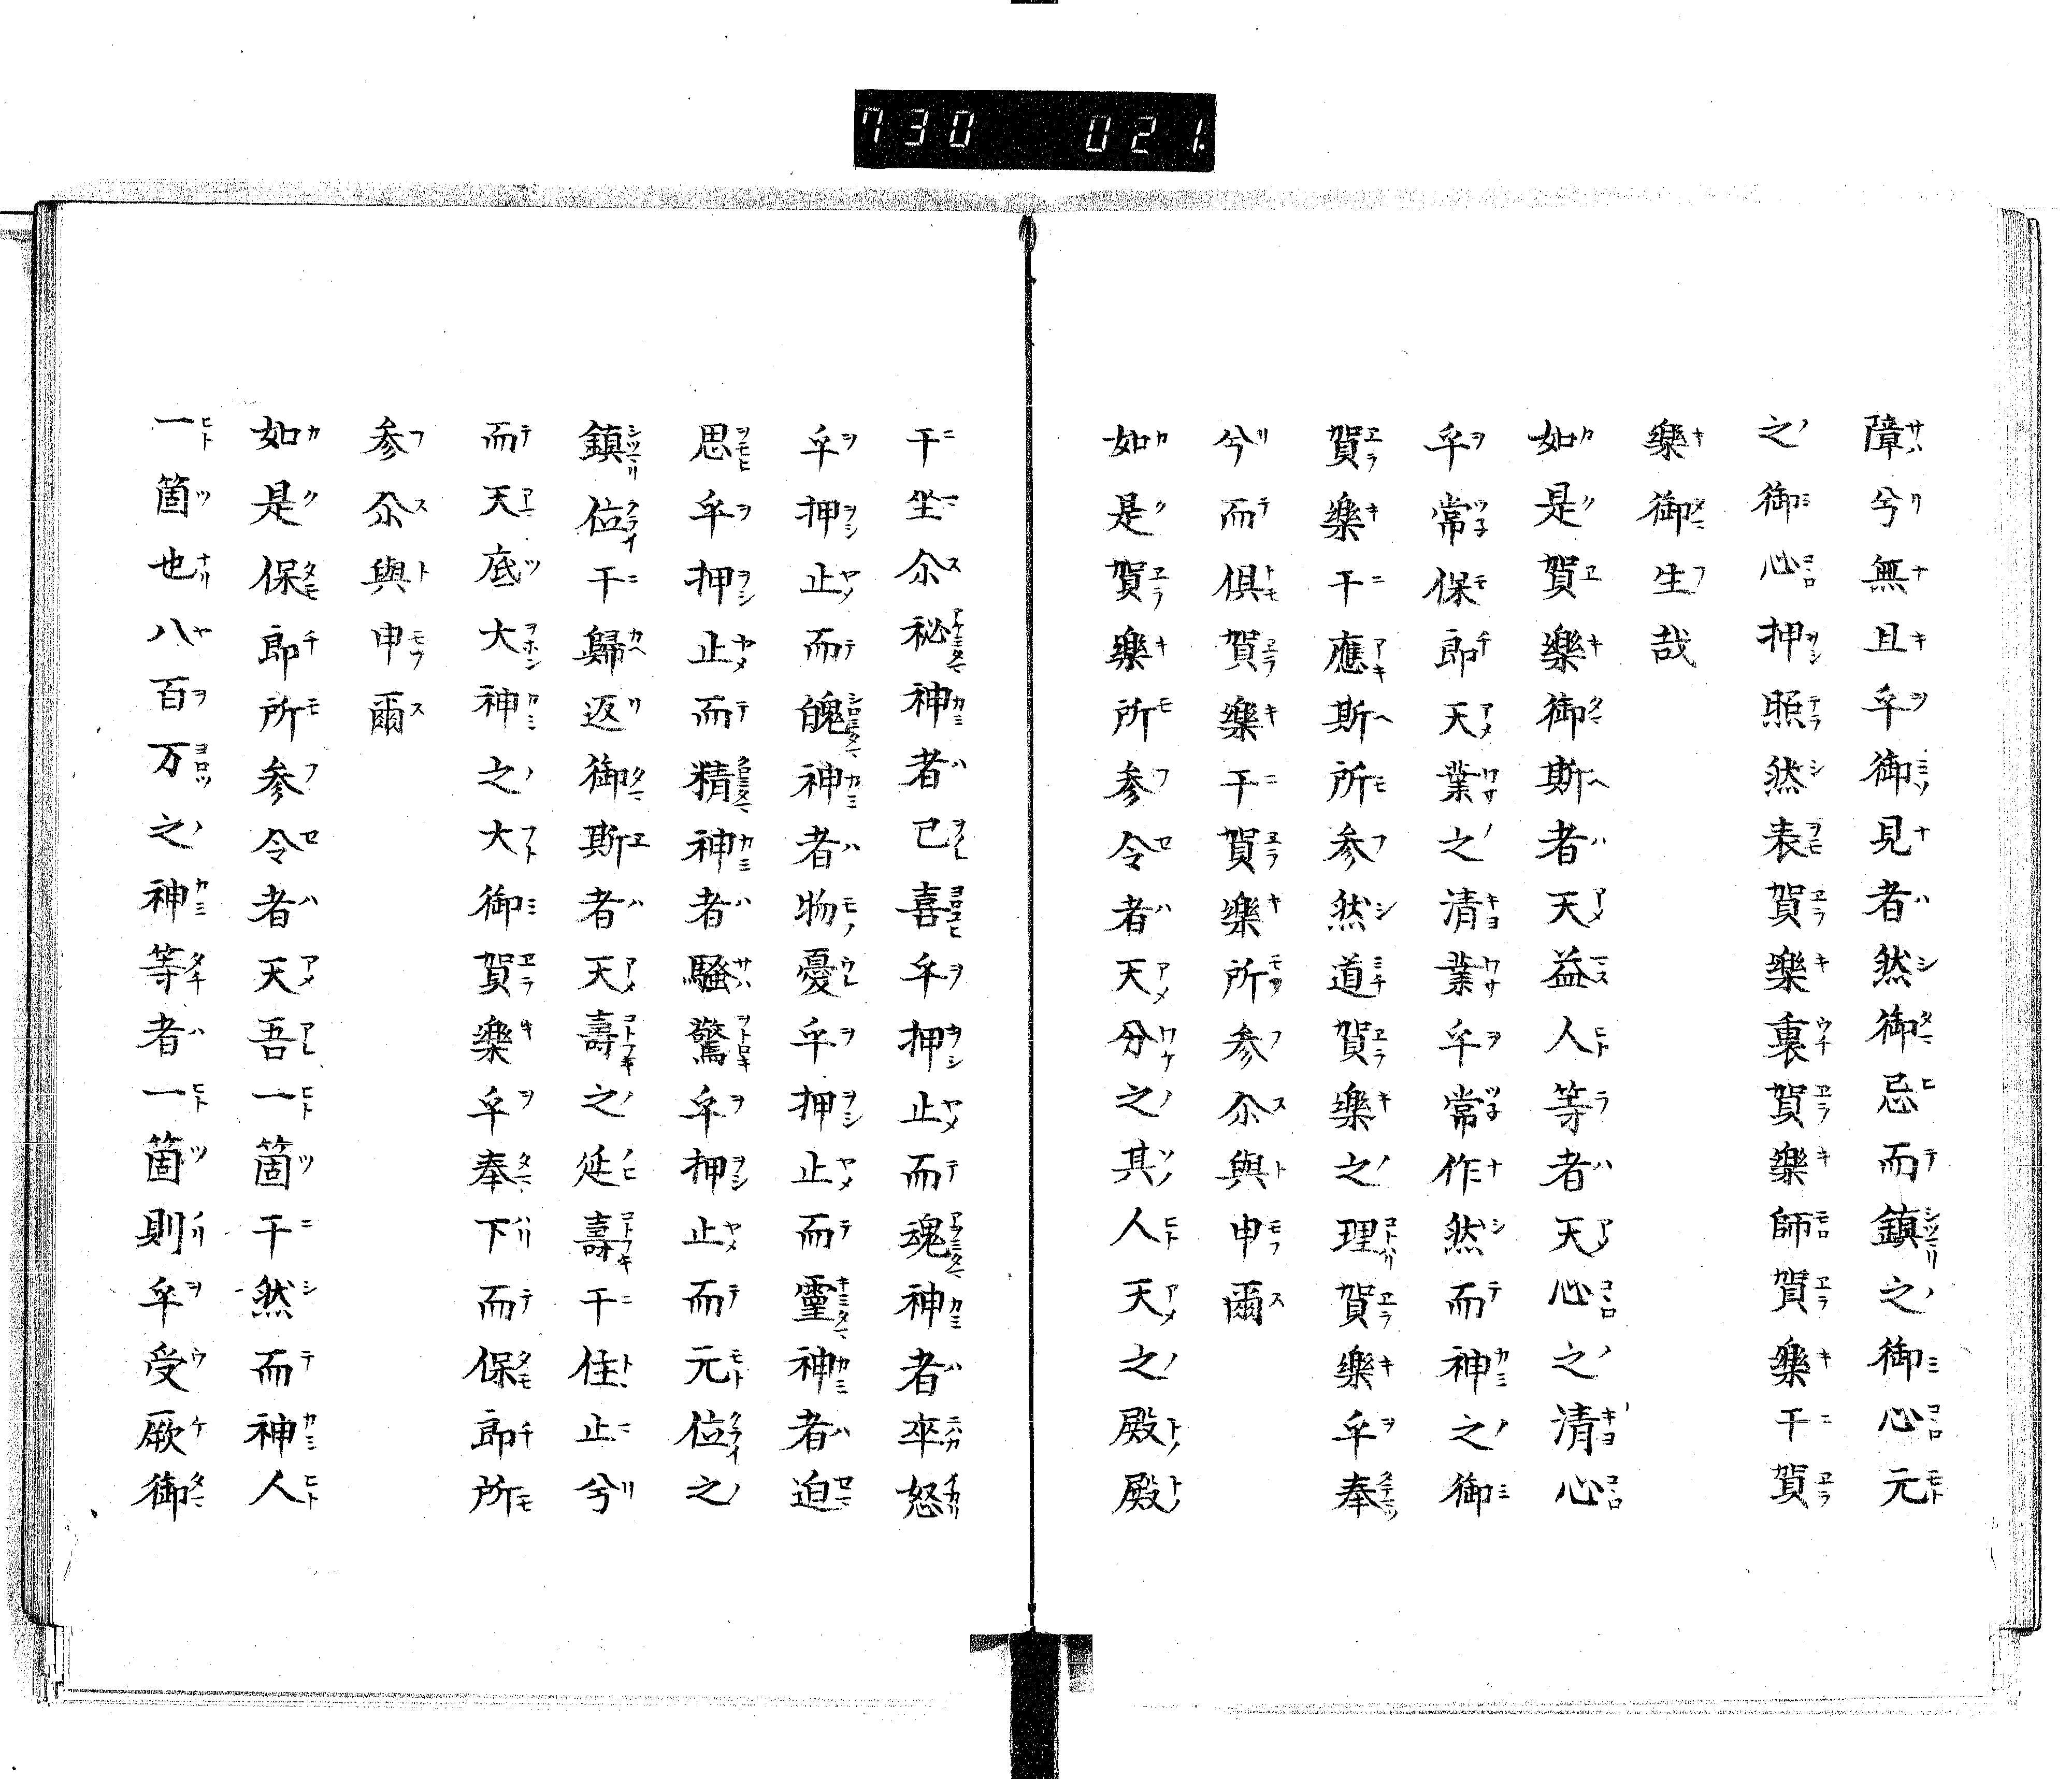 730 021.
障兮無且乎御見者然御忌而鎮之御心元
之御心押照然表賀樂裏賀樂師賀樂干賀
樂御生哉
如是賀樂御斯者天益人等者天心之清心
乎常保郎天業之清業乎常作然而神之御
賀樂干應斯所參然道賀樂之理賀樂乎奉
兮而俱賀樂干賀樂所參尒與申爾
如是賀樂所參令者天分之其人天之殿殿
干坐尒祕神者己喜乎押止而魂神者卒怒
乎押止而魄神者物憂乎押止而靈神者迫
思乎押止而精神者騷驚乎押止而元位之
鎮位干歸返御斯者天壽之延壽干住止兮
而天底大神之大御賀樂乎奉下而保郎所
參尒與申爾
如是保郎所參令者天吾一箇干然而神人
一箇也八百万之神等者一箇則乎受厥御